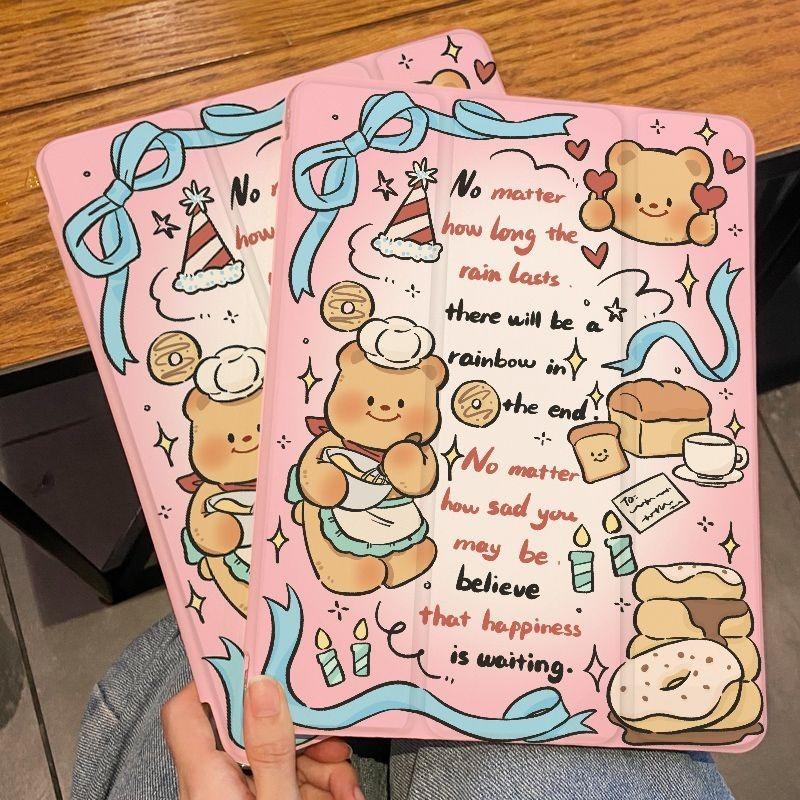 No
how
No matter
how long the
rain lasts.
there will be a
rainbow in
the end!
No matter
how sad you
may be.
believe
that happiness
is waiting.
To: